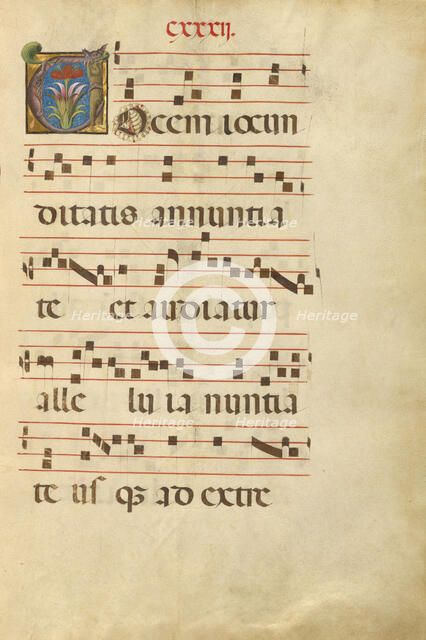 CXXXIJ.
VOcem iocun
ditatis annuntia
te et audiatur
alle lu ia nuntia
te usq3 ad extre
Heritage
Heritage
Heritage
Heritage
Heritage